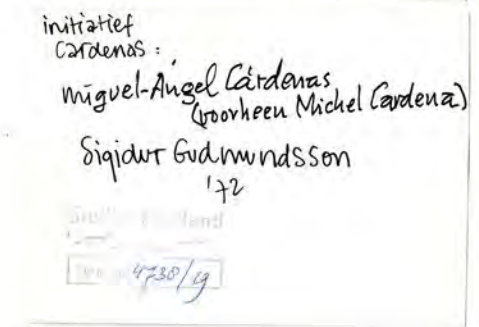 initiatief
Cardenas :
Miguel-Ángel Cárdenas
(voorheen Michel Cardena)
Sigidur Gudmundsson
'72
4738/19